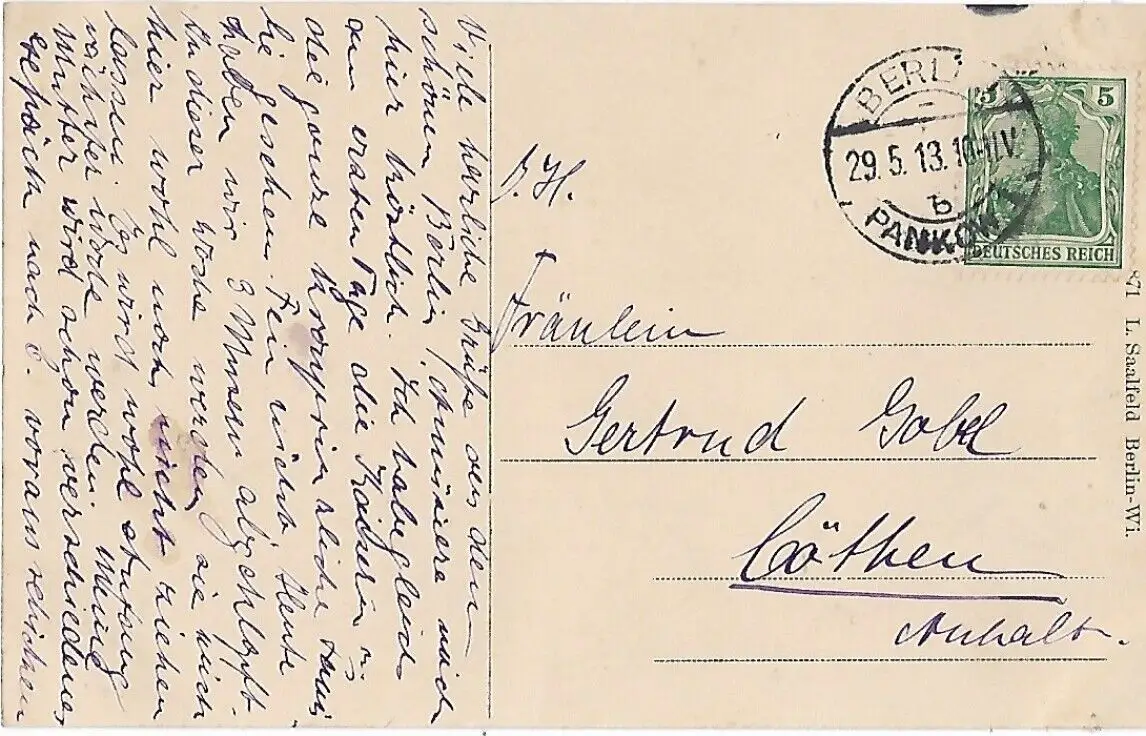 Viele herzliche Grüße aus dem
schönen Berlin, amüsiere mich
hier köstlich. Ich habe gleich
am ersten Tage die Kaiserin u.
die ganze kronprinzliche Fami
lie gesehen. Fein
haben wir 3 Museen abgeklappt.
In dieser Woche werden sie mich
hier wohl noch nicht ziehen
lassen. Es wird wohl Anfang
nächster Woche werden. Meine
Mutter wird schon verschiedenes
Gepäck nach C. vorausschicken
BERLIN
29.5.13.10-11V.
b
PANKOW 1
5 5
DEUTSCHES REICH
S. H.
Fräulein
Gertrud Gobel
Cöthen
Anhalt.
871 L. Saalfeld Berlin-Wi.